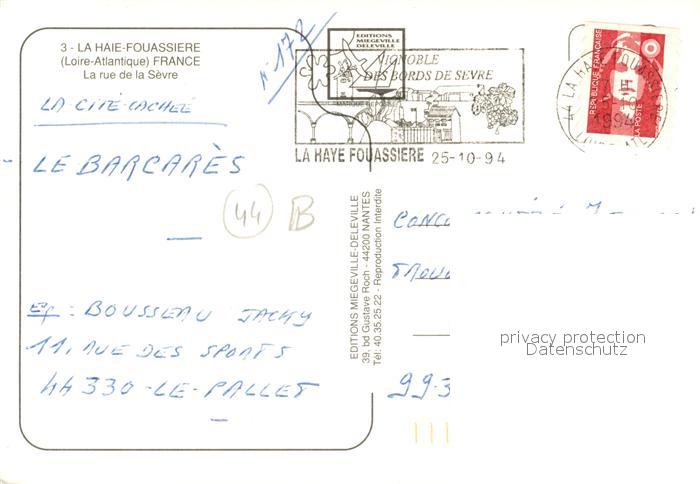 3 - LA HAIE-FOUASSIERE
(Loire-Atlantique) FRANCE
La rue de la Sèvre
N° 172
EDITIONS
MIEGEVILLE
DELEVILLE
VIGNOBLE
DES BORDS DE SEVRE
LA HAYE FOUASSIERE 25-10-94
REPUBLIQUE FRANÇAISE
LA POSTE
44 LA HAYE FOUASSIERE
1994
LA CITÉ CACHÉE
LE BARCARÈS
44 B
Ef : BOUSSEAU JACKY
11, RUE DES SPORTS
44330-LE-PALLET
EDITIONS MIEGEVILLE-DELEVILLE
39, bd Gustave Roch - 44200 NANTES
Tél. 40.35.25.22 - Reproduction Interdite
CONC
TROU
99-3
privacy protection
Datenschutz